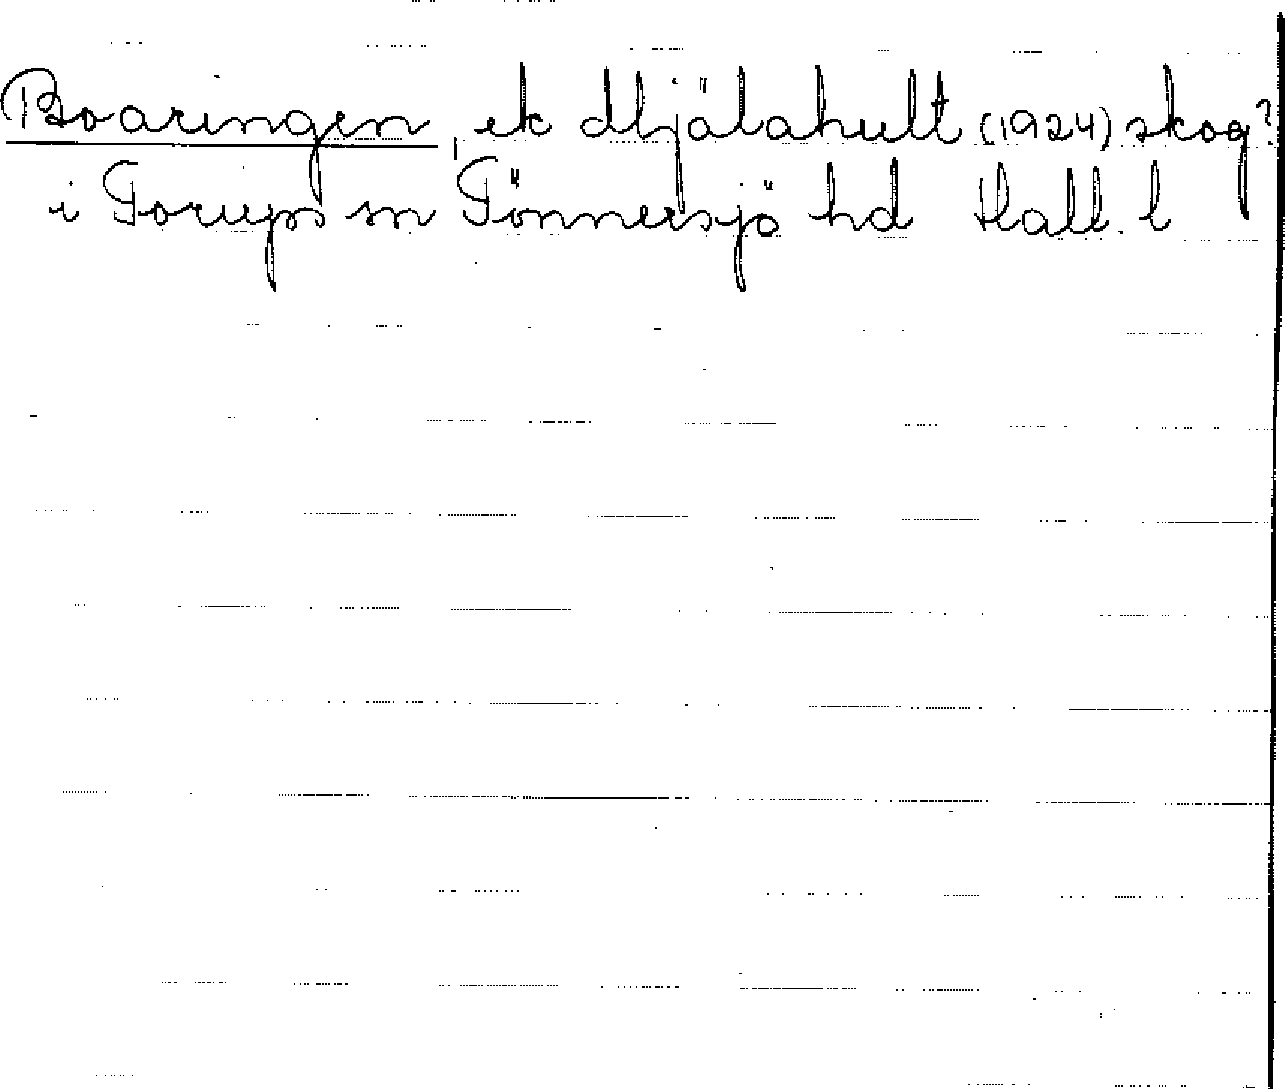 Boaringen, ek Mjälahult (1924) skog?
i Torups sn Tönnersjö hd Hall. l